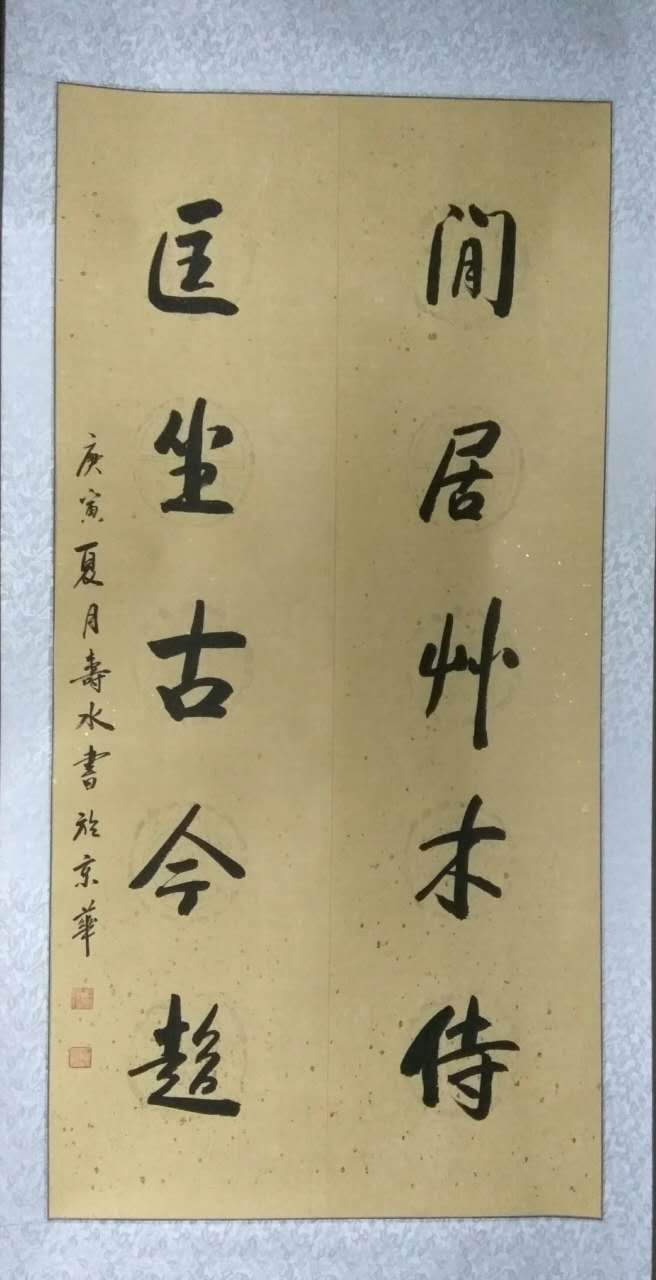 閒居艸木侍
匡坐古今趨
庚寅夏月壽水書於京華